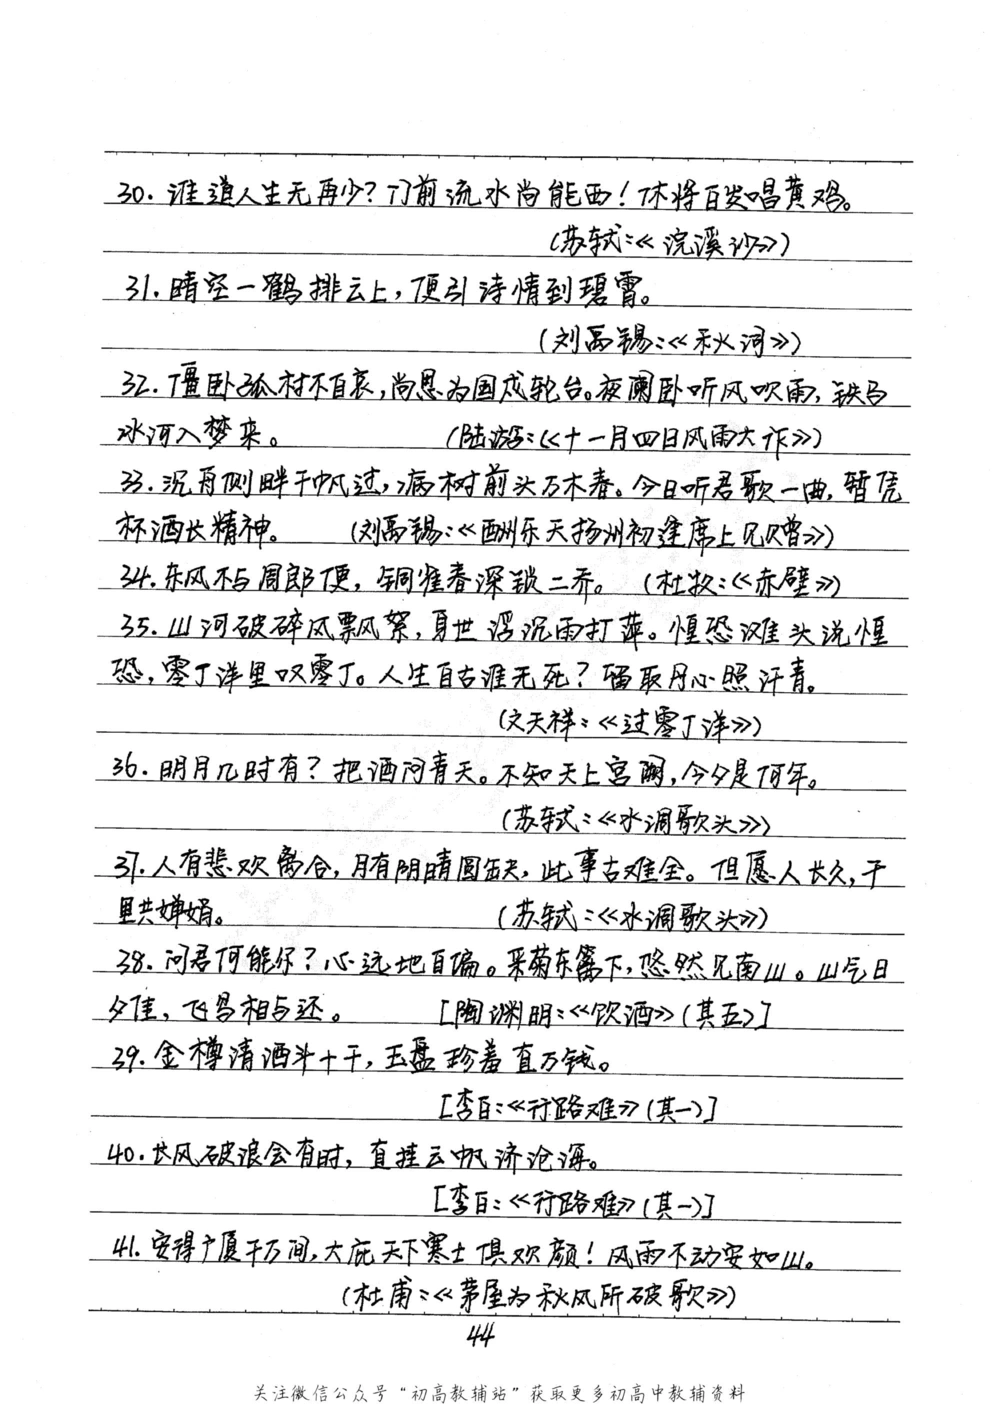 30. 谁道人生无再少？门前流水尚能西！休将白发唱黄鸡。
(苏轼：《浣溪沙》)
31. 晴空一鹤排云上，便引诗情到碧霄。
(刘禹锡：《秋词》)
32. 僵卧孤村不自哀，尚思为国戍轮台。夜阑卧听风吹雨，铁马
冰河入梦来。 (陆游：《十一月四日风雨大作》)
33. 沉舟侧畔千帆过，病树前头万木春。今日听君歌一曲，暂凭
杯酒长精神。 (刘禹锡：《酬乐天扬州初逢席上见赠》)
34. 东风不与周郎便，铜雀春深锁二乔。 (杜牧：《赤壁》)
35. 山河破碎风飘絮，身世浮沉雨打萍。惶恐滩头说惶
恐，零丁洋里叹零丁。人生自古谁无死？留取丹心照汗青。
(文天祥：《过零丁洋》)
36. 明月几时有？把酒问青天。不知天上宫阙，今夕是何年。
(苏轼：《水调歌头》)
37. 人有悲欢离合，月有阴晴圆缺，此事古难全。但愿人长久，千
里共婵娟。 (苏轼：《水调歌头》)
38. 问君何能尔？心远地自偏。采菊东篱下，悠然见南山。山气日
夕佳，飞鸟相与还。 [陶渊明：《饮酒》(其五)]
39. 金樽清酒斗十千，玉盘珍羞直万钱。
[李白：《行路难》(其一)]
40. 长风破浪会有时，直挂云帆济沧海。
[李白：《行路难》(其一)]
41. 安得广厦千万间，大庇天下寒士俱欢颜！风雨不动安如山。
(杜甫：《茅屋为秋风所破歌》)
44
关注微信公众号“初高教辅站”获取更多初高中教辅资料